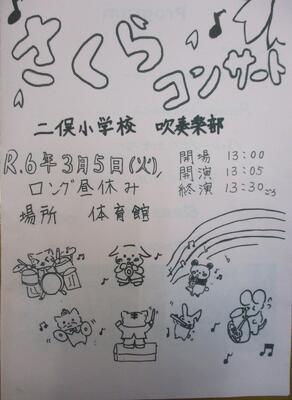 さくら
コンサート
二俣小学校 吹奏楽部
R.6年3月5日(火)
ロング昼休み
場所 体育館
開場 13:00
開演 13:05
終演 13:30ごろ